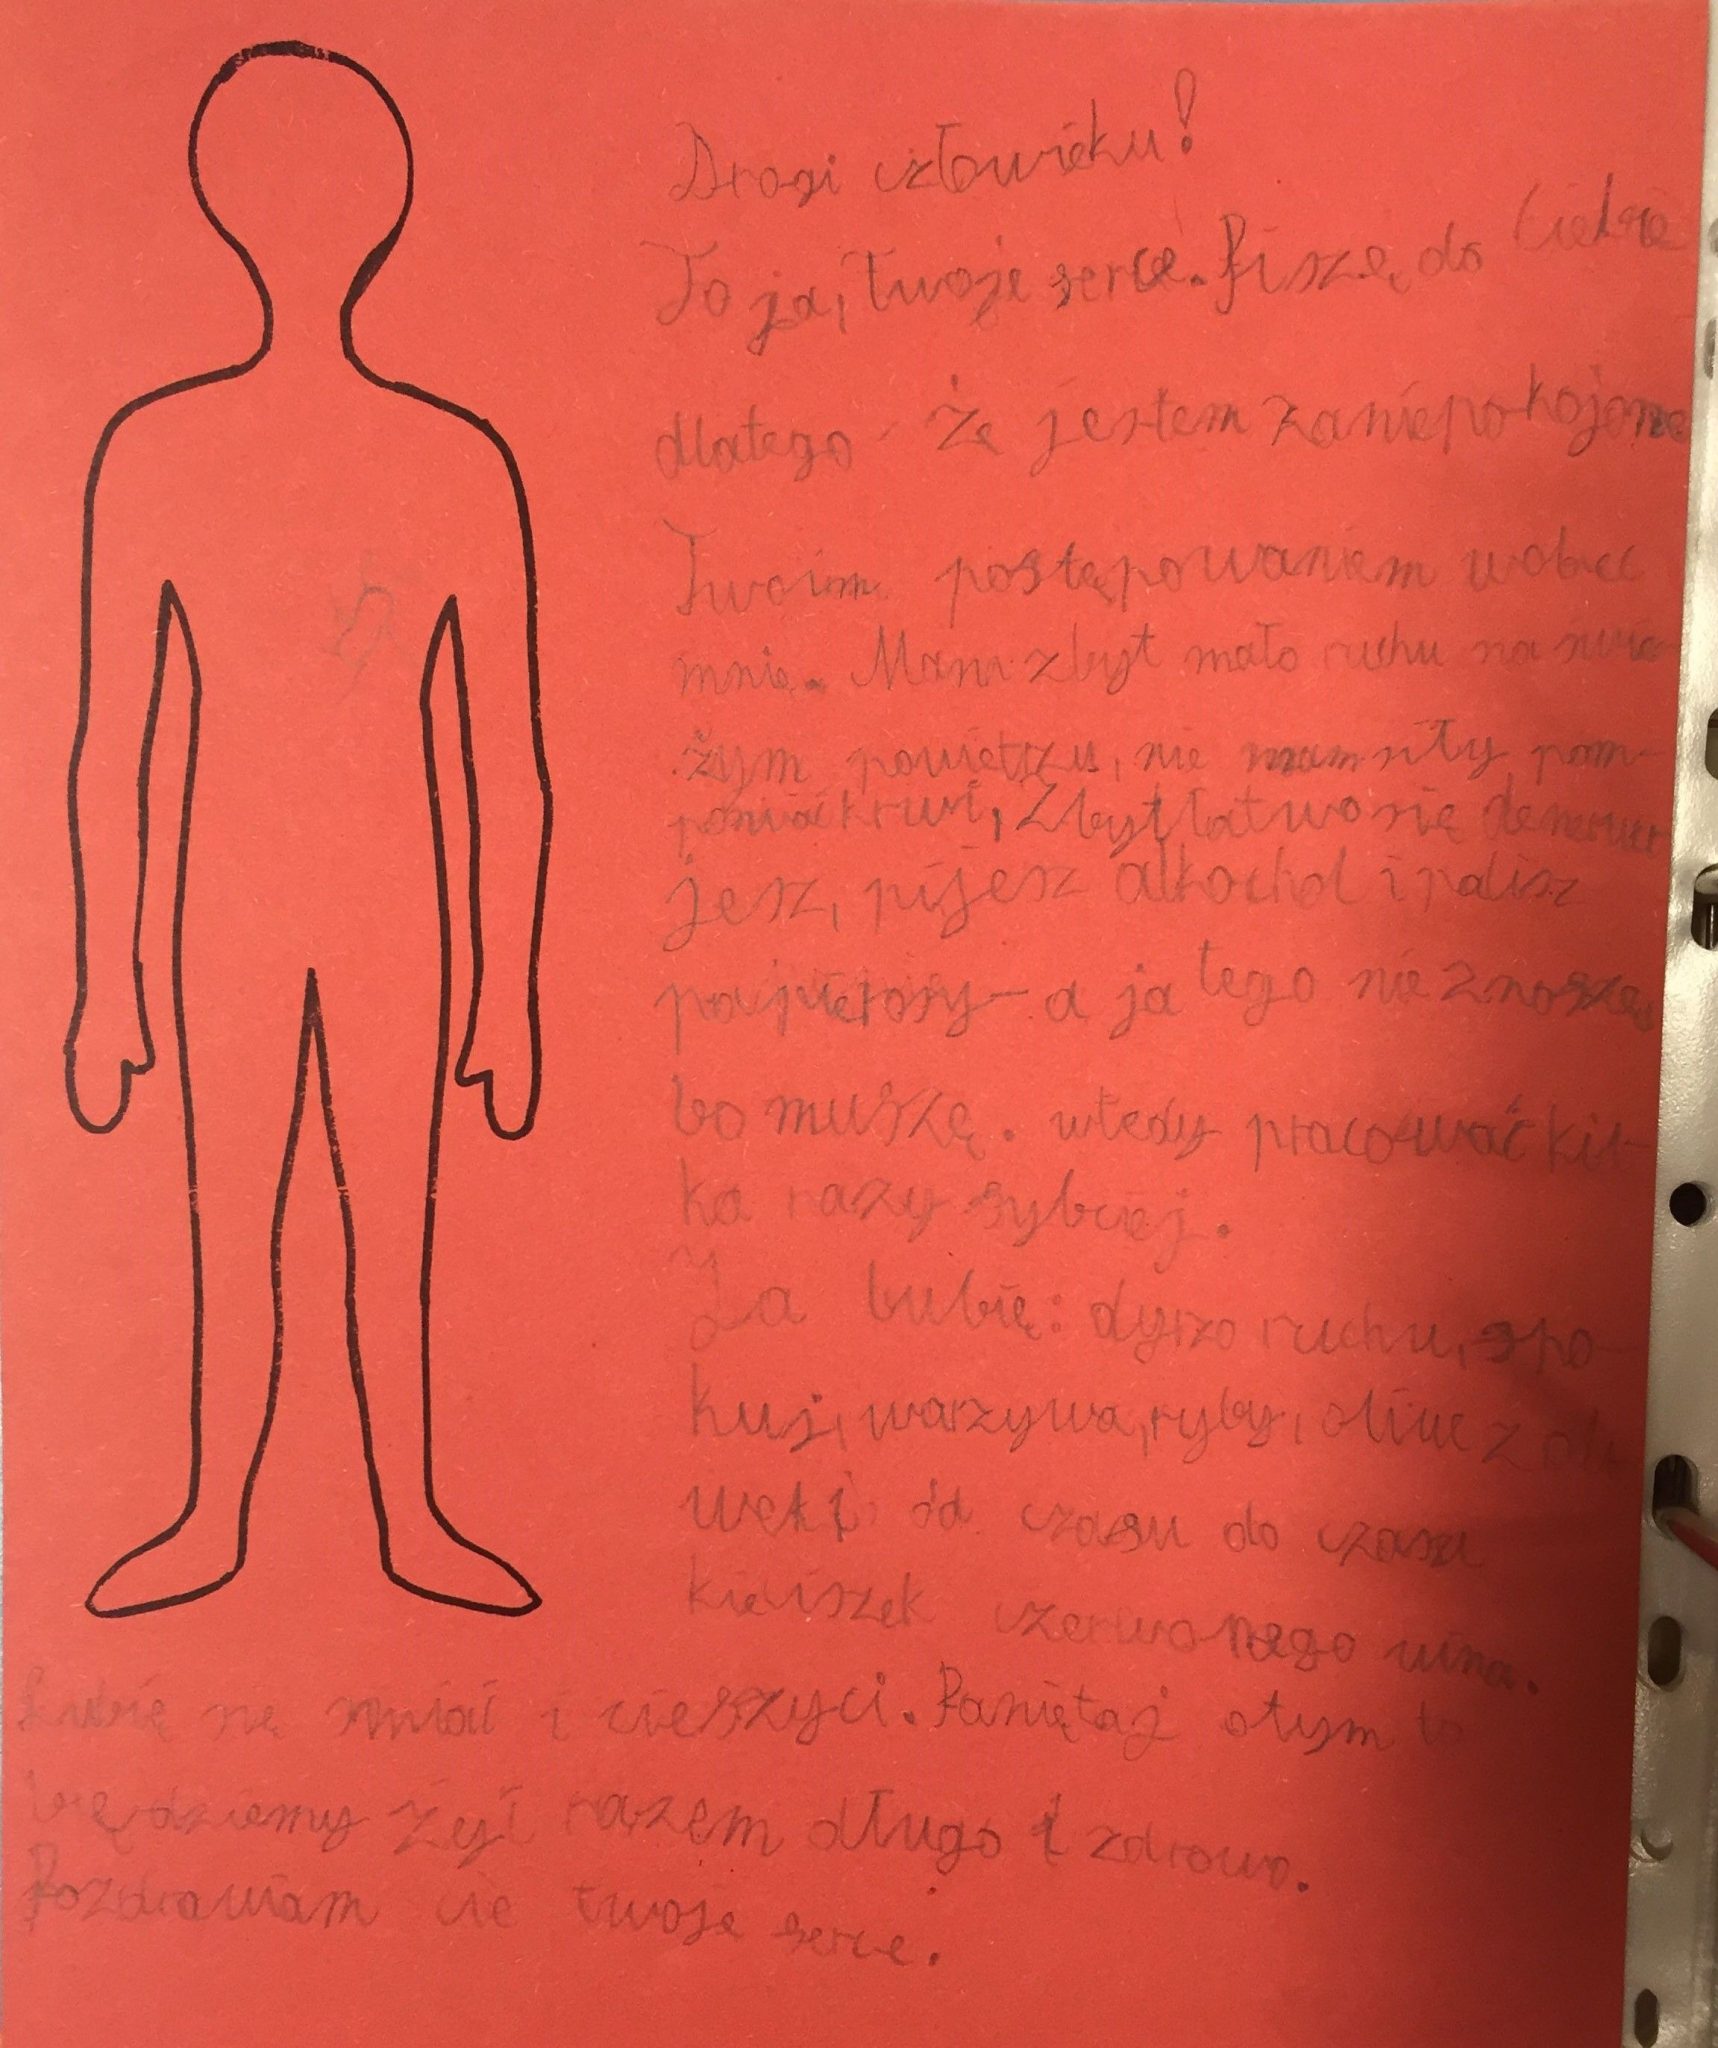 Drogi człowieku!
To ja, twoje serce. Piszę do Ciebie
dlatego że jestem zaniepokojone
Twoim postępowaniem wobec
mnie. Mam zbyt mało ruchu na świe-
żym powietrzu, nie mam siły pom-
powiać krwi, Zbyt łatwo się denerwu
jesz, pijesz alkochol i palisz
papierosy - a ja tego nie znoszę,
bo muszę. wtedy pracować kil-
ka razy sybciej.
Ja lubię: dyrzo ruchu, spo-
kuj, warzywa, ryby, oliwe z oli
wek i od czasu do czasu
kieliszek czerwonego wina.
Lubię się śmiać i cieszyci. Pamiętaj otym to
będziemy żyć razem długo i zdrowo.
Pozdrawiam cie twoje serce.